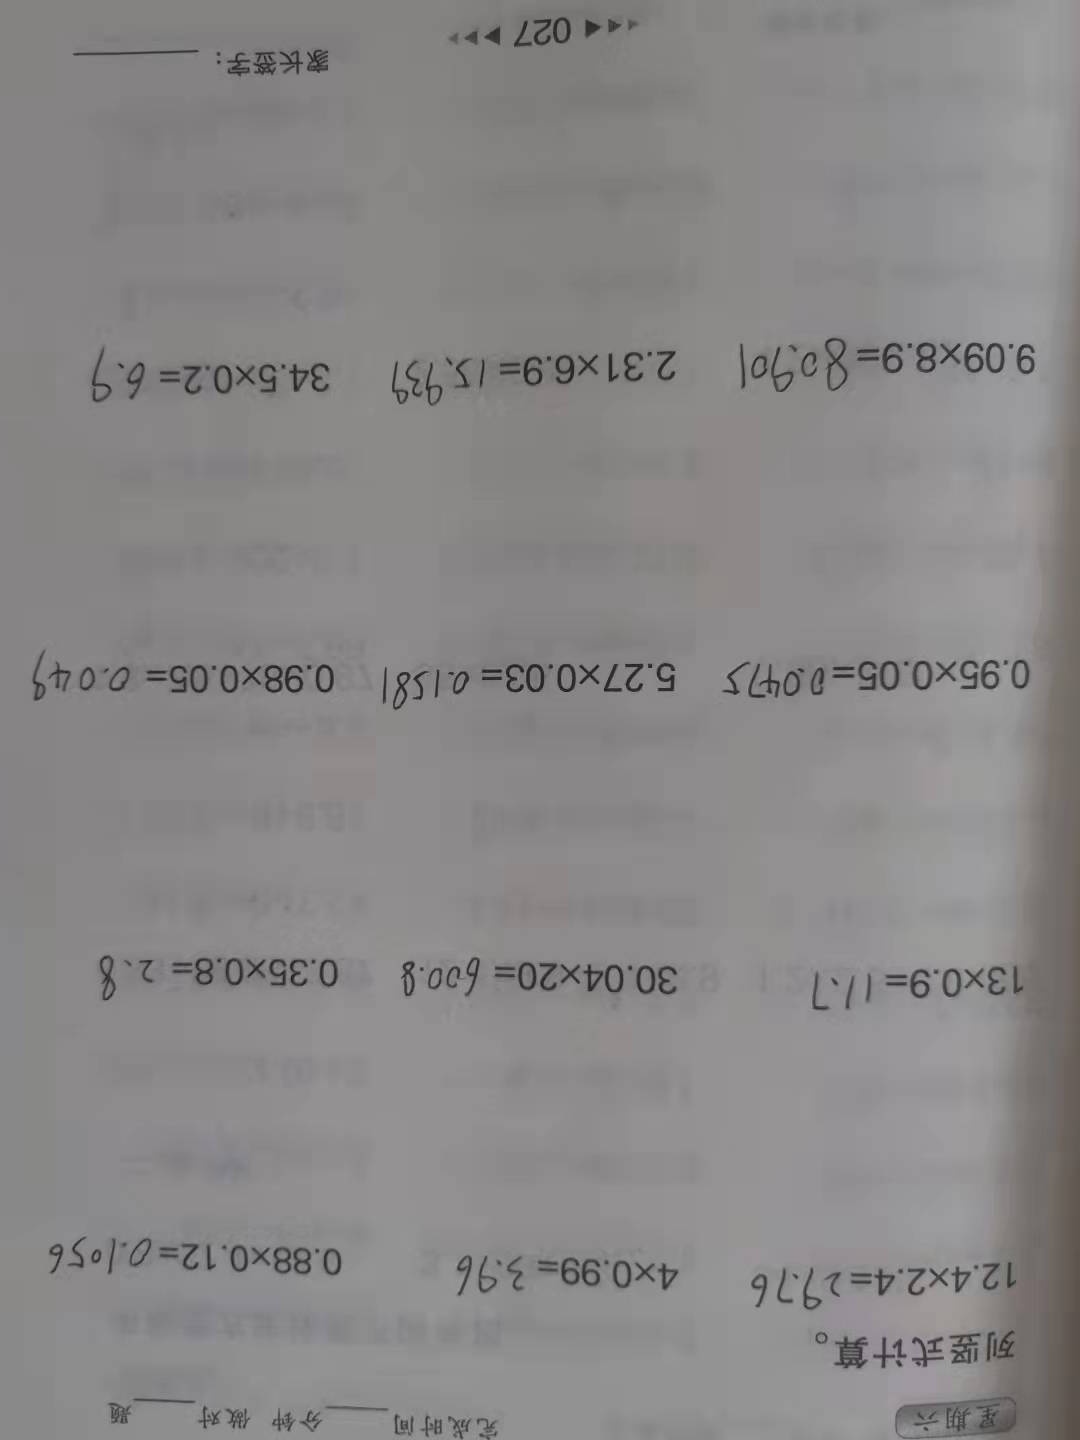 星期六 完成时间____分钟 做对____题
列竖式计算。
12.4×2.4=29.76 4×0.99=3.96 0.88×0.12=0.1056
13×0.9=11.7 30.04×20=600.8 0.35×0.8=2.8
0.95×0.05=0.0475 5.27×0.03=0.1581 0.98×0.05=0.049
9.09×8.9=80.901 2.31×6.9=15.939 34.5×0.2=6.9
家长签字：____
027